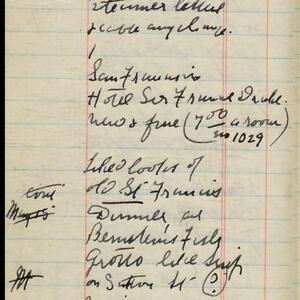 steamer letters
& cable any change.
San Francisco
Hotel Sir Francis Drake.
new & fine (7.00 a room)
no 1029
Liked looks of
old St Francis
Dinner at
Bernstein's Fish
Grotto like ship
on Sutter St (?)